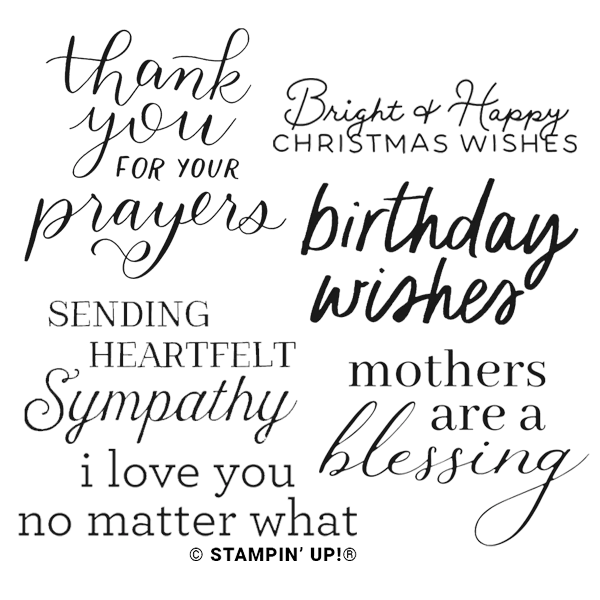 thank
you
FOR YOUR
prayers
Bright & Happy
CHRISTMAS WISHES
birthday
wishes
SENDING
HEARTFELT
Sympathy
mothers
are a
blessing
i love you
no matter what
© STAMPIN' UP!®